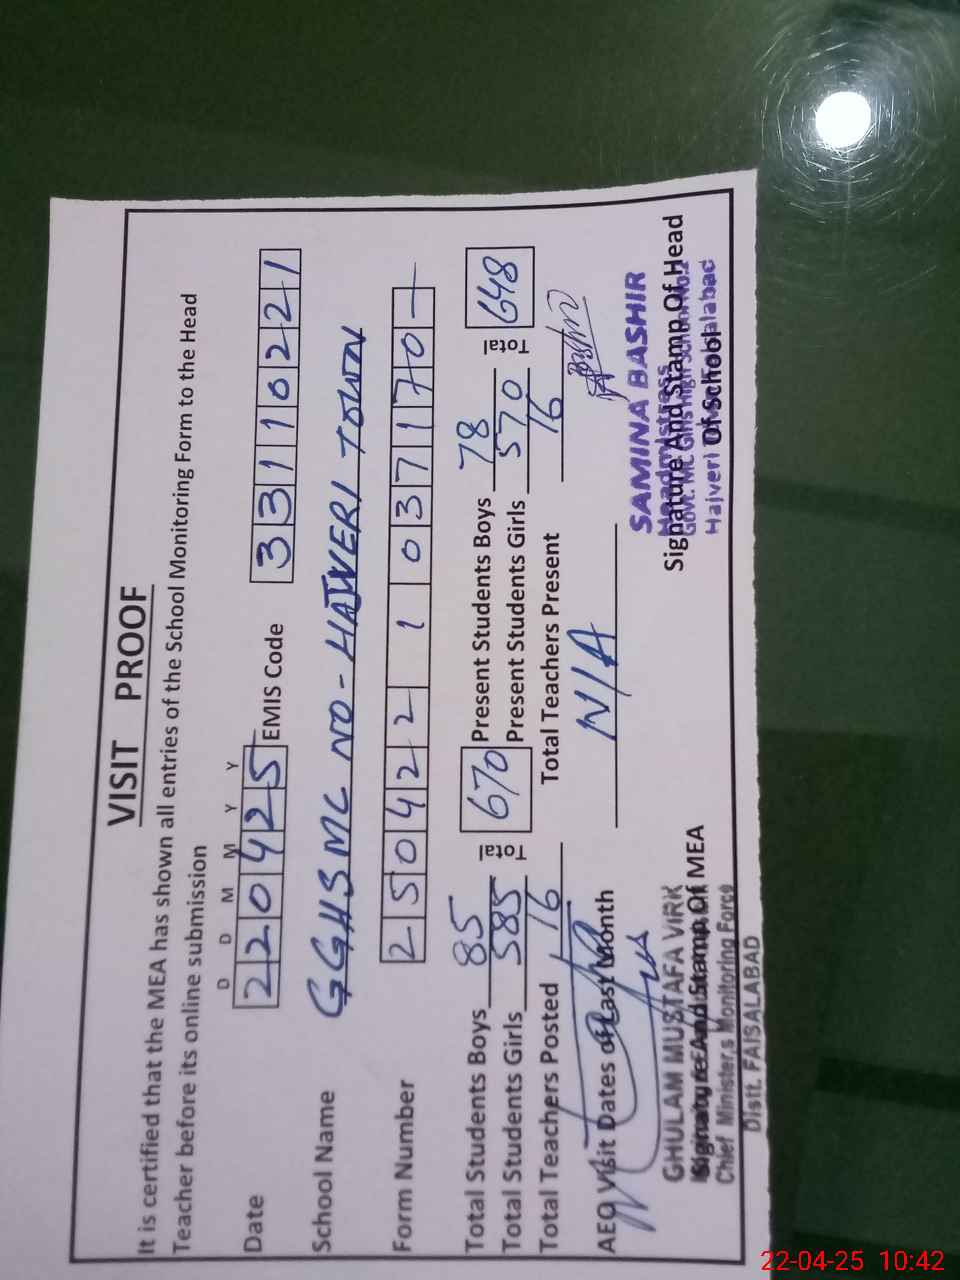 VISIT PROOF
It is certified that the MEA has shown all entries of the School Monitoring Form to the Head
Teacher before its online submission
D D M M Y Y
Date 220425 EMIS Code 33110221
School Name GGHS MC NO- HAJVERI TOWN
Form Number 250422 1 037170-
Total Students Boys 85 Total 670 Present Students Boys 78 Total 648
Total Students Girls 585 Present Students Girls 570
Total Teachers Posted 16 Total Teachers Present 16
AEO Visit Dates of Last Month N/A
GHULAM MUSTAFA VIRK
Signature And Stamp Of MEA
Chief Minister,s Monitoring Force
Distt. FAISALABAD
SAMINA BASHIR
Headmistress
Signature And Stamp Of Head
Of School
Govt. MC Girls High School No.
Hajveri Town Faisalabad
22-04-25 10:42